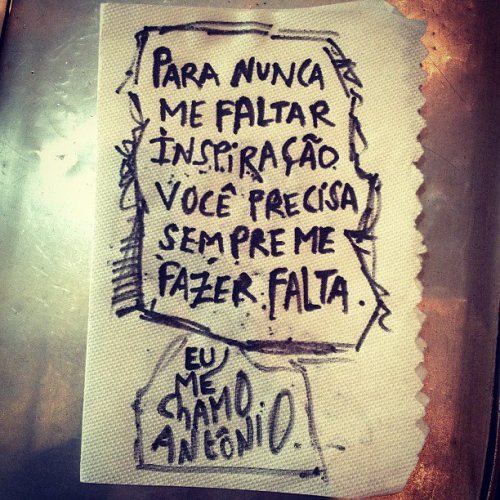 PARA NUNCA
ME FALTAR
INSPIRAÇÃO
VOCÊ PRECISA
SEMPRE ME
FAZER FALTA.
EU
ME
CHAMO
ANTÔNIO.